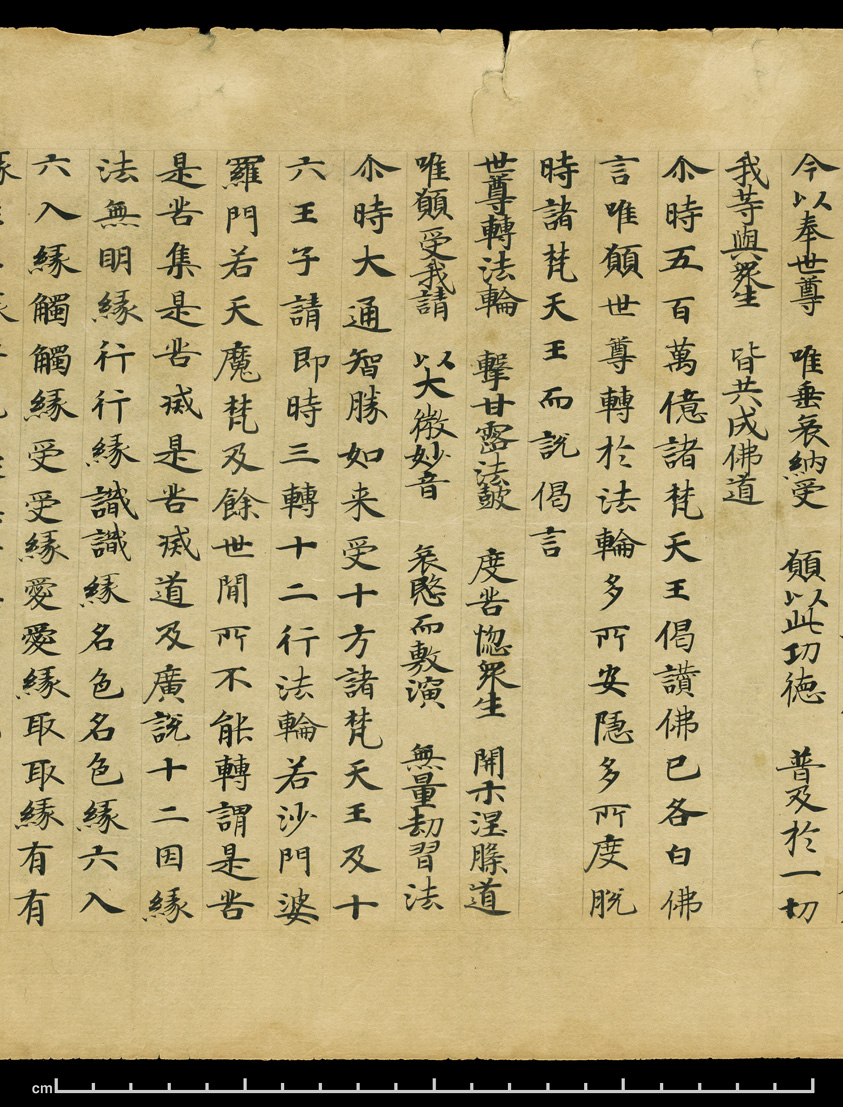 今以奉世尊 唯垂哀納受 願以此功德 普及於一切
我等與眾生 皆共成佛道
尒時五百萬億諸梵天王偈讚佛已各白佛
言唯願世尊轉於法輪多所安隱多所度脫
時諸梵天王而說偈言
世尊轉法輪 擊甘露法皷 度苦惱眾生 開示涅槃道
唯願受我請 以大微妙音 哀愍而敷演 無量劫習法
尒時大通智勝如来受十方諸梵天王及十
六王子請即時三轉十二行法輪若沙門婆
羅門若天魔梵及餘世間所不能轉謂是苦
是苦集是苦滅是苦滅道及廣說十二因緣
法無明緣行行緣識識緣名色名色緣六入
六入緣觸觸緣受受緣愛愛緣取取緣有有
cm